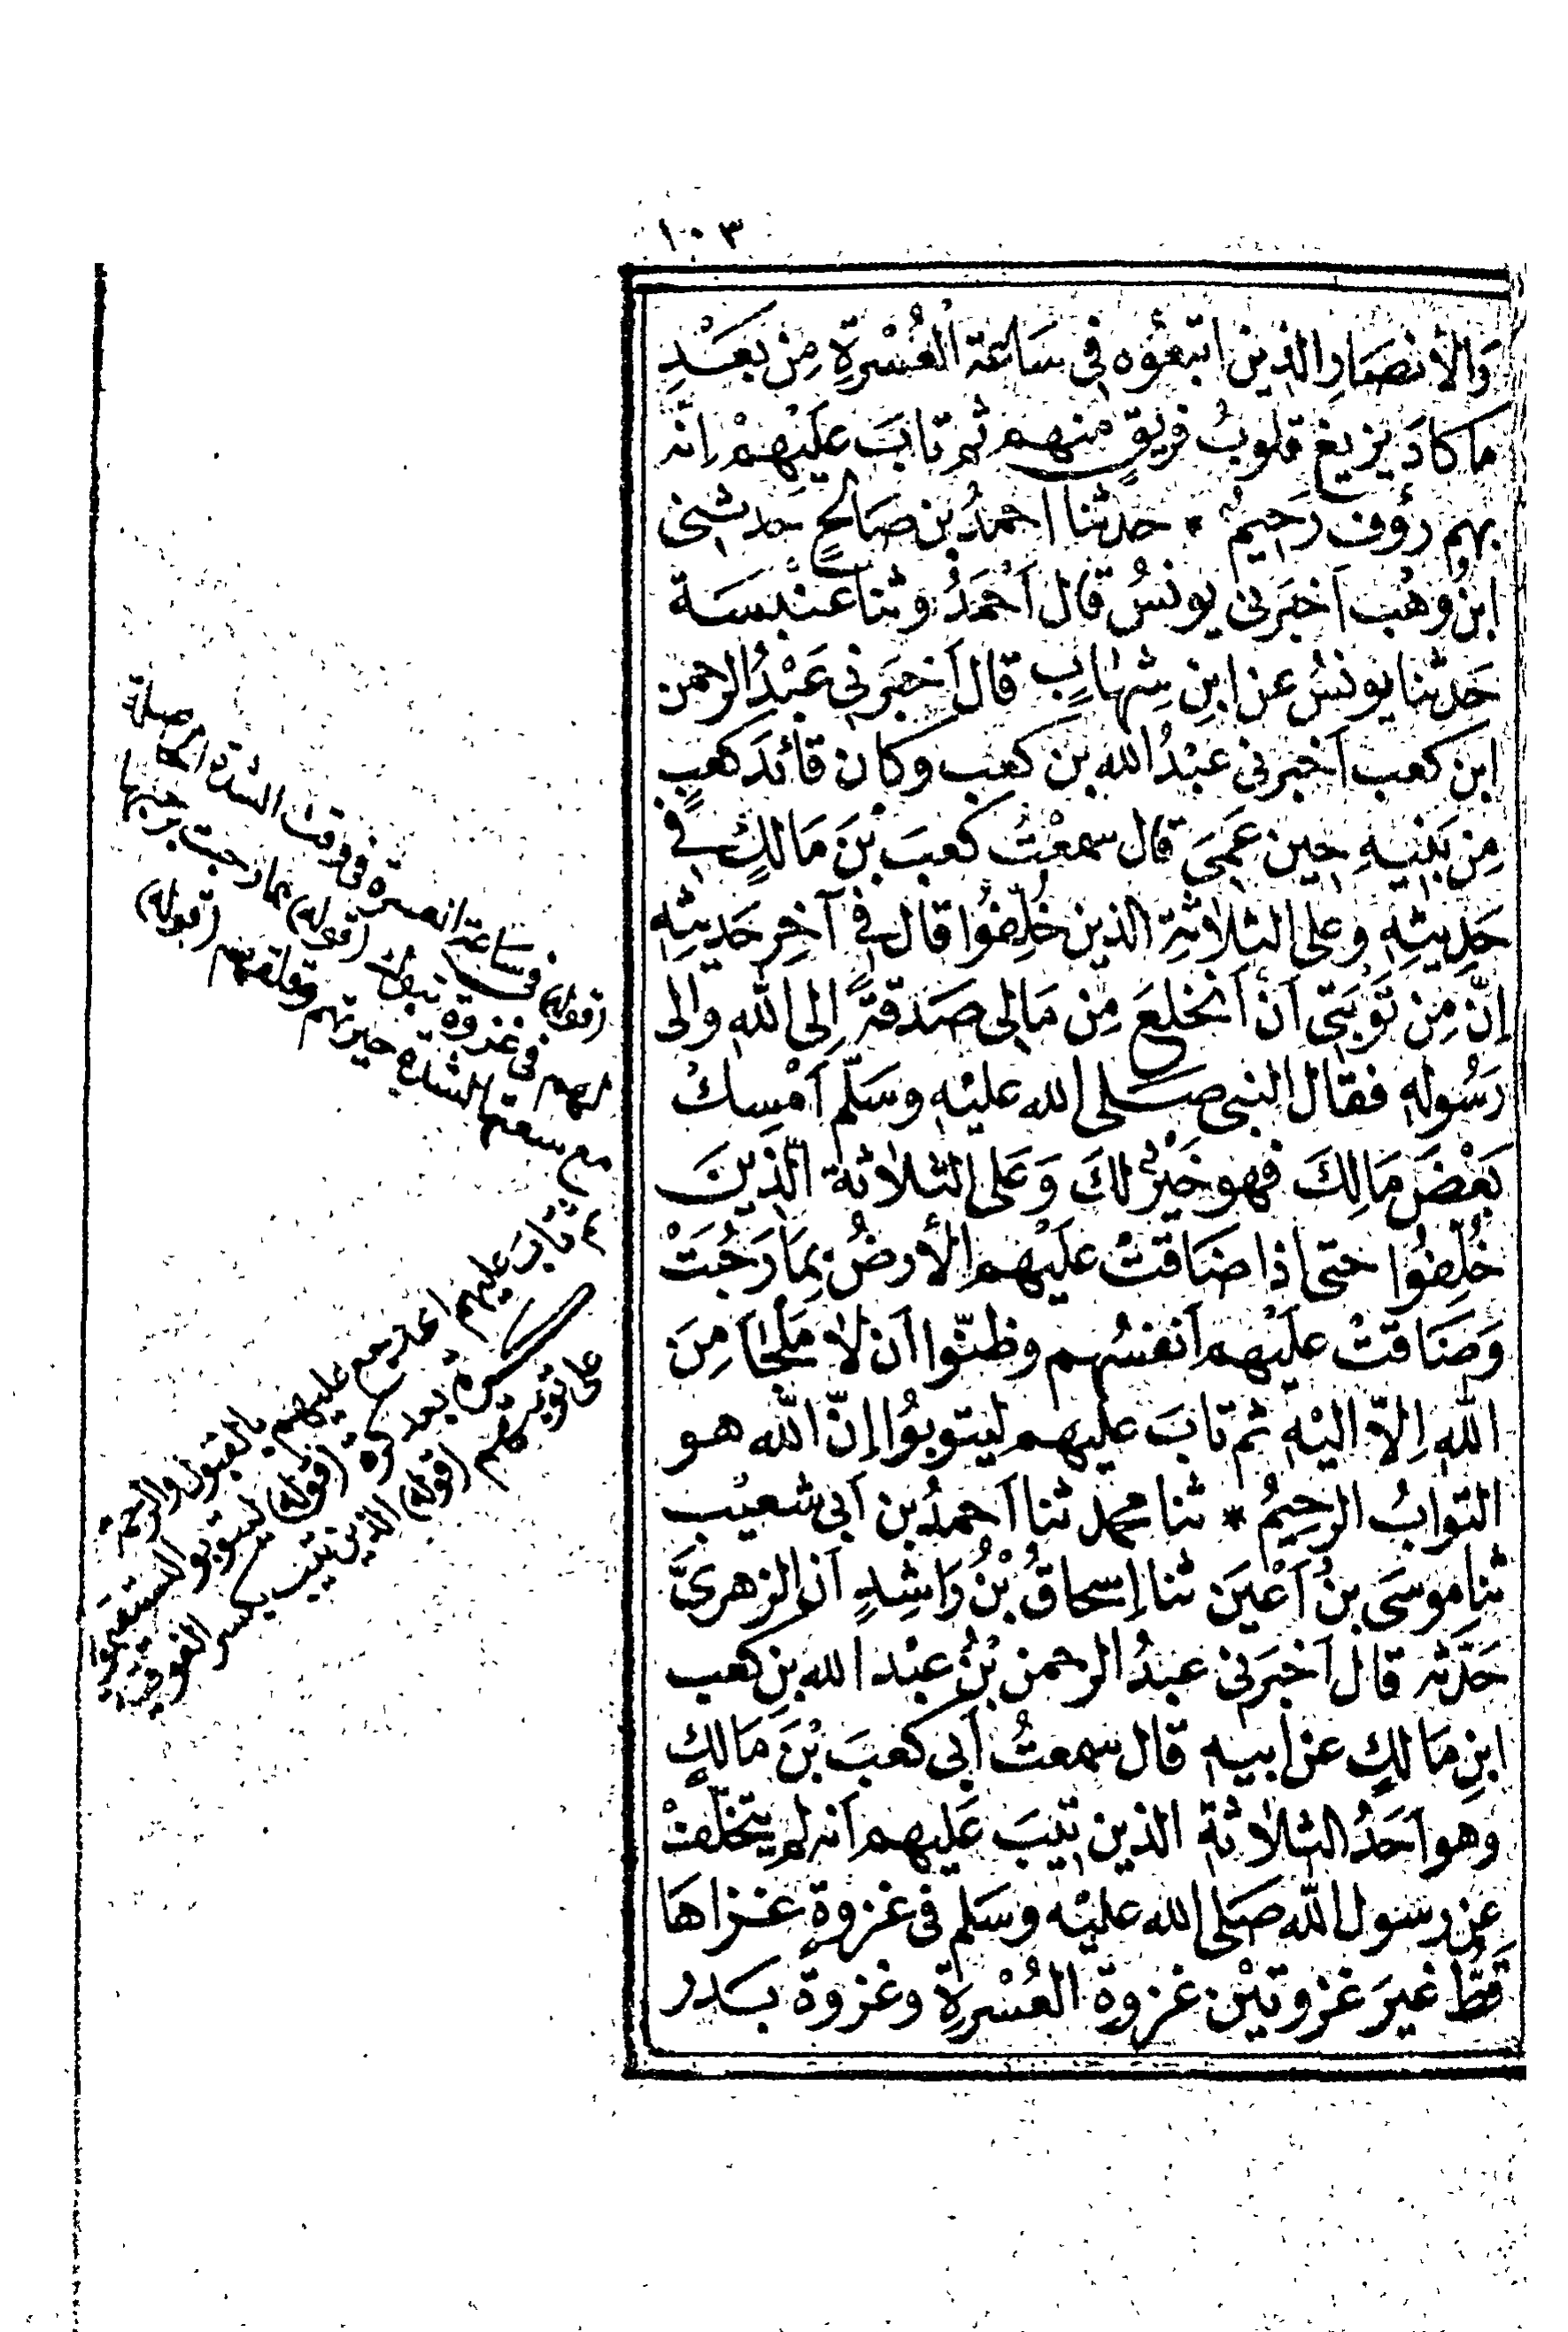 ١٠٣
وَالأنصَارِ الذين اتبعُوه فِي سَاعة الْعُسْرةِ مِن بَعَـْدِ
ما كادَ يزيغ قلوبُ فريقٍ منهـم ثم تابَ علَيْهـمْ اِنّه
بهم رؤف رَحِيمٌ * حدثنا احمدُ بن صَالحٍ حَدثنى
ابنُ وهْب اَخبَرنى يونسُ قال اَحْمَدُ وثنا عنْبسَـة
حَدثنا يونسُ عن ابنِ شِهابٍ قال اَخبَرنى عَبْدُ الرحمن
ابن كعب اَخبرنى عبْدُ الله بن كعب وكان قائدَ كعبٍ
مِن بَنيهِ حِين عَمِىَ قال سمعْتُ كعبَ بنَ مَالكٍ فِي
حَدِيثِهِ وعلى الثلاثةِ الذين خُلِّفُوا قال فِي آخِر حَدِيثِهِ
اِنَّ مِن تَوْبَتى اَن اَنخلعَ مِن مَالى صَدقةً اِلى اللهِ والى
رَسُولهِ فقال النبى صَـلى الله عليْهِ وسَلّم اَمْسِكْ
بَعْضَ مَالِكَ فهو خَيْرٌ لكَ وَعَلى الثلاثة الّذِينَ
خُلِّفُوا حتى اذا ضَاقتْ علَيْهـم الأرضُ بِمَا رَحُبَتْ
وَضَاقتْ علَيْهم اَنفسُهـم وظنّوا اَن لا مَلْجَاَ مِنَ
اللهِ اِلاّ اليْهِ ثم تابَ عليهم ليتوبُوا اِنّ اللهَ هـو
التوابُ الرحِيمُ * ثنا محمد ثنا اَحمدُ بن اَبى شعيْب
ثنا موسَى بنُ اَعْيَن ثنا اِسحاقُ بْنُ رَاشِدٍ اَن الزهرىَّ
حَدّثه قال اَخبَرنى عبدُ الرحمن بْنُ عبْد الله بنِ كعب
ابنِ مَالكٍ عن ابيهِ قال سمعتُ اَبى كعبَ بْنَ مَالكٍ
وهو اَحَدُ الثلاثةِ الذين تِيبَ عَليهـم اَنه لم يتخلّفْ
عن رسول اللهِ صَلى الله عليْه وسَلم فى غزوةٍ غـزاهَا
قَطُّ غيرَ غزوتيْن غزوةِ العُسْرةِ وغزوةِ بَـدر
(قوله) فى ساعة العسرة فى وقت الشدة الحاصلة
لهم فى غزوة تبوك (قوله) بما رحبت برحبها
مع سعتها لشدة حيرتهم وقلقهم (قوله)
ثم تابَ عليهم اى رجع عليهم بالقبول والرحمة
كرة بعد كرة (قوله) ليتوبوا ليستقيموا
على توبتهم (قوله) الذين تيب بكسر الفوقية